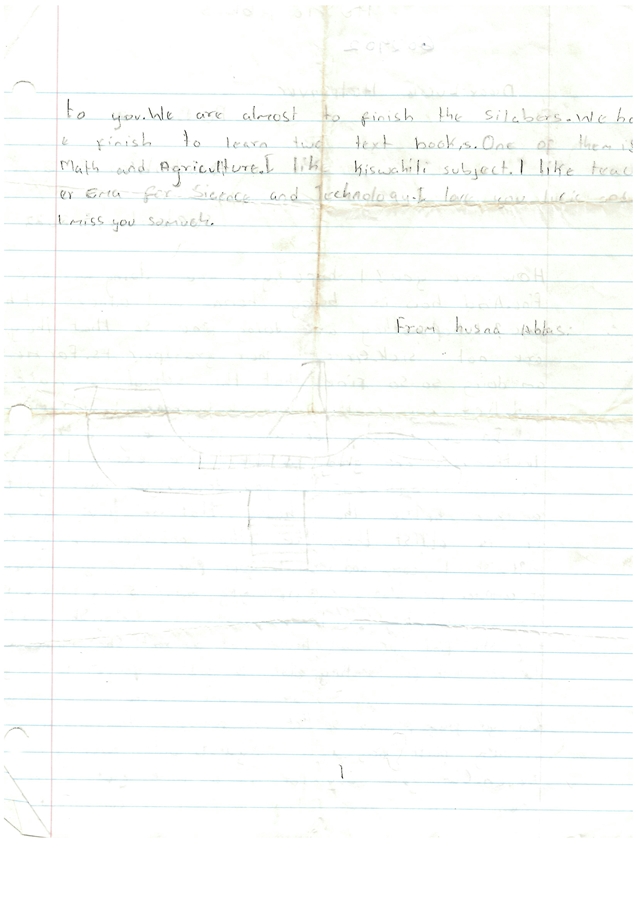 to you.We are almost to finish the Silabers.We ha
e finish to learn two text books.One of them is
Math and Agriculture.I like Kiswahili subject.I like teac
er Erica for Sicence and Technology.I love you
I miss you somuch.
From husna Abbas.
1